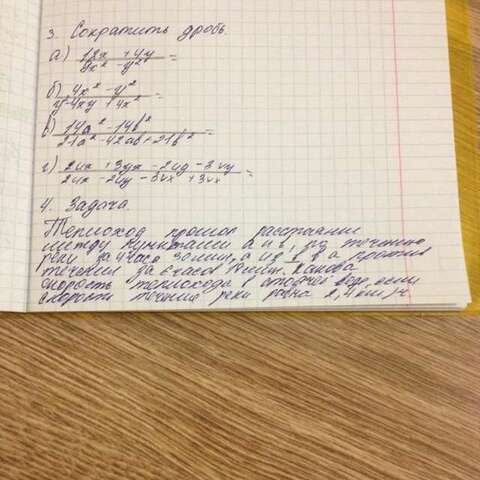 3. Сократить дробь.
а) 18x + 4y / 9x² - y² =
б) 4x² - y² / y² - 4xy + 4x² =
в) 14a² - 14b² / 21a² - 42ab + 21b² =
4. Задача.
Теплоход прошол расстояние
между пунктами а и в, по течению
реки за 4 часа 30 мин, а из в в а против
течения за 6 часов мин. Какова
скорость теплохода в стоячей воде, если
скорость течения реки равна 2,4 км/ч